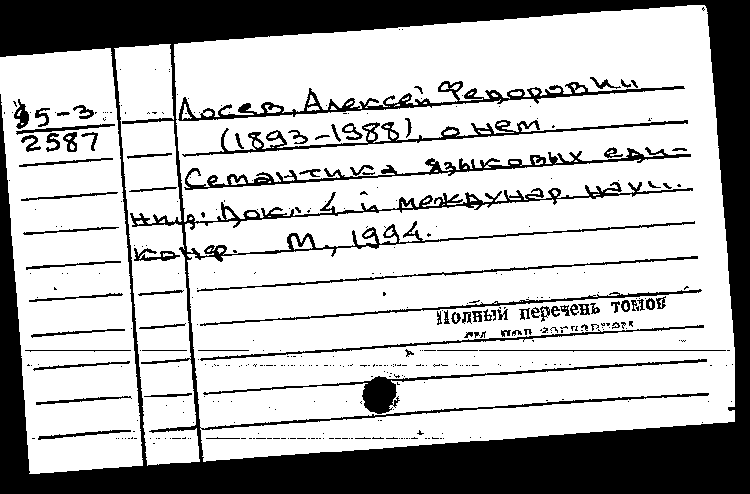 95-3
2587
Лосев, Алексей Федорович
(1893-1988), о нем.
Семантика языковых еди-
ниц: Докл. 4-й междунар. науч.
конф. М., 1994.
Полный перечень томов
см. под заглавием